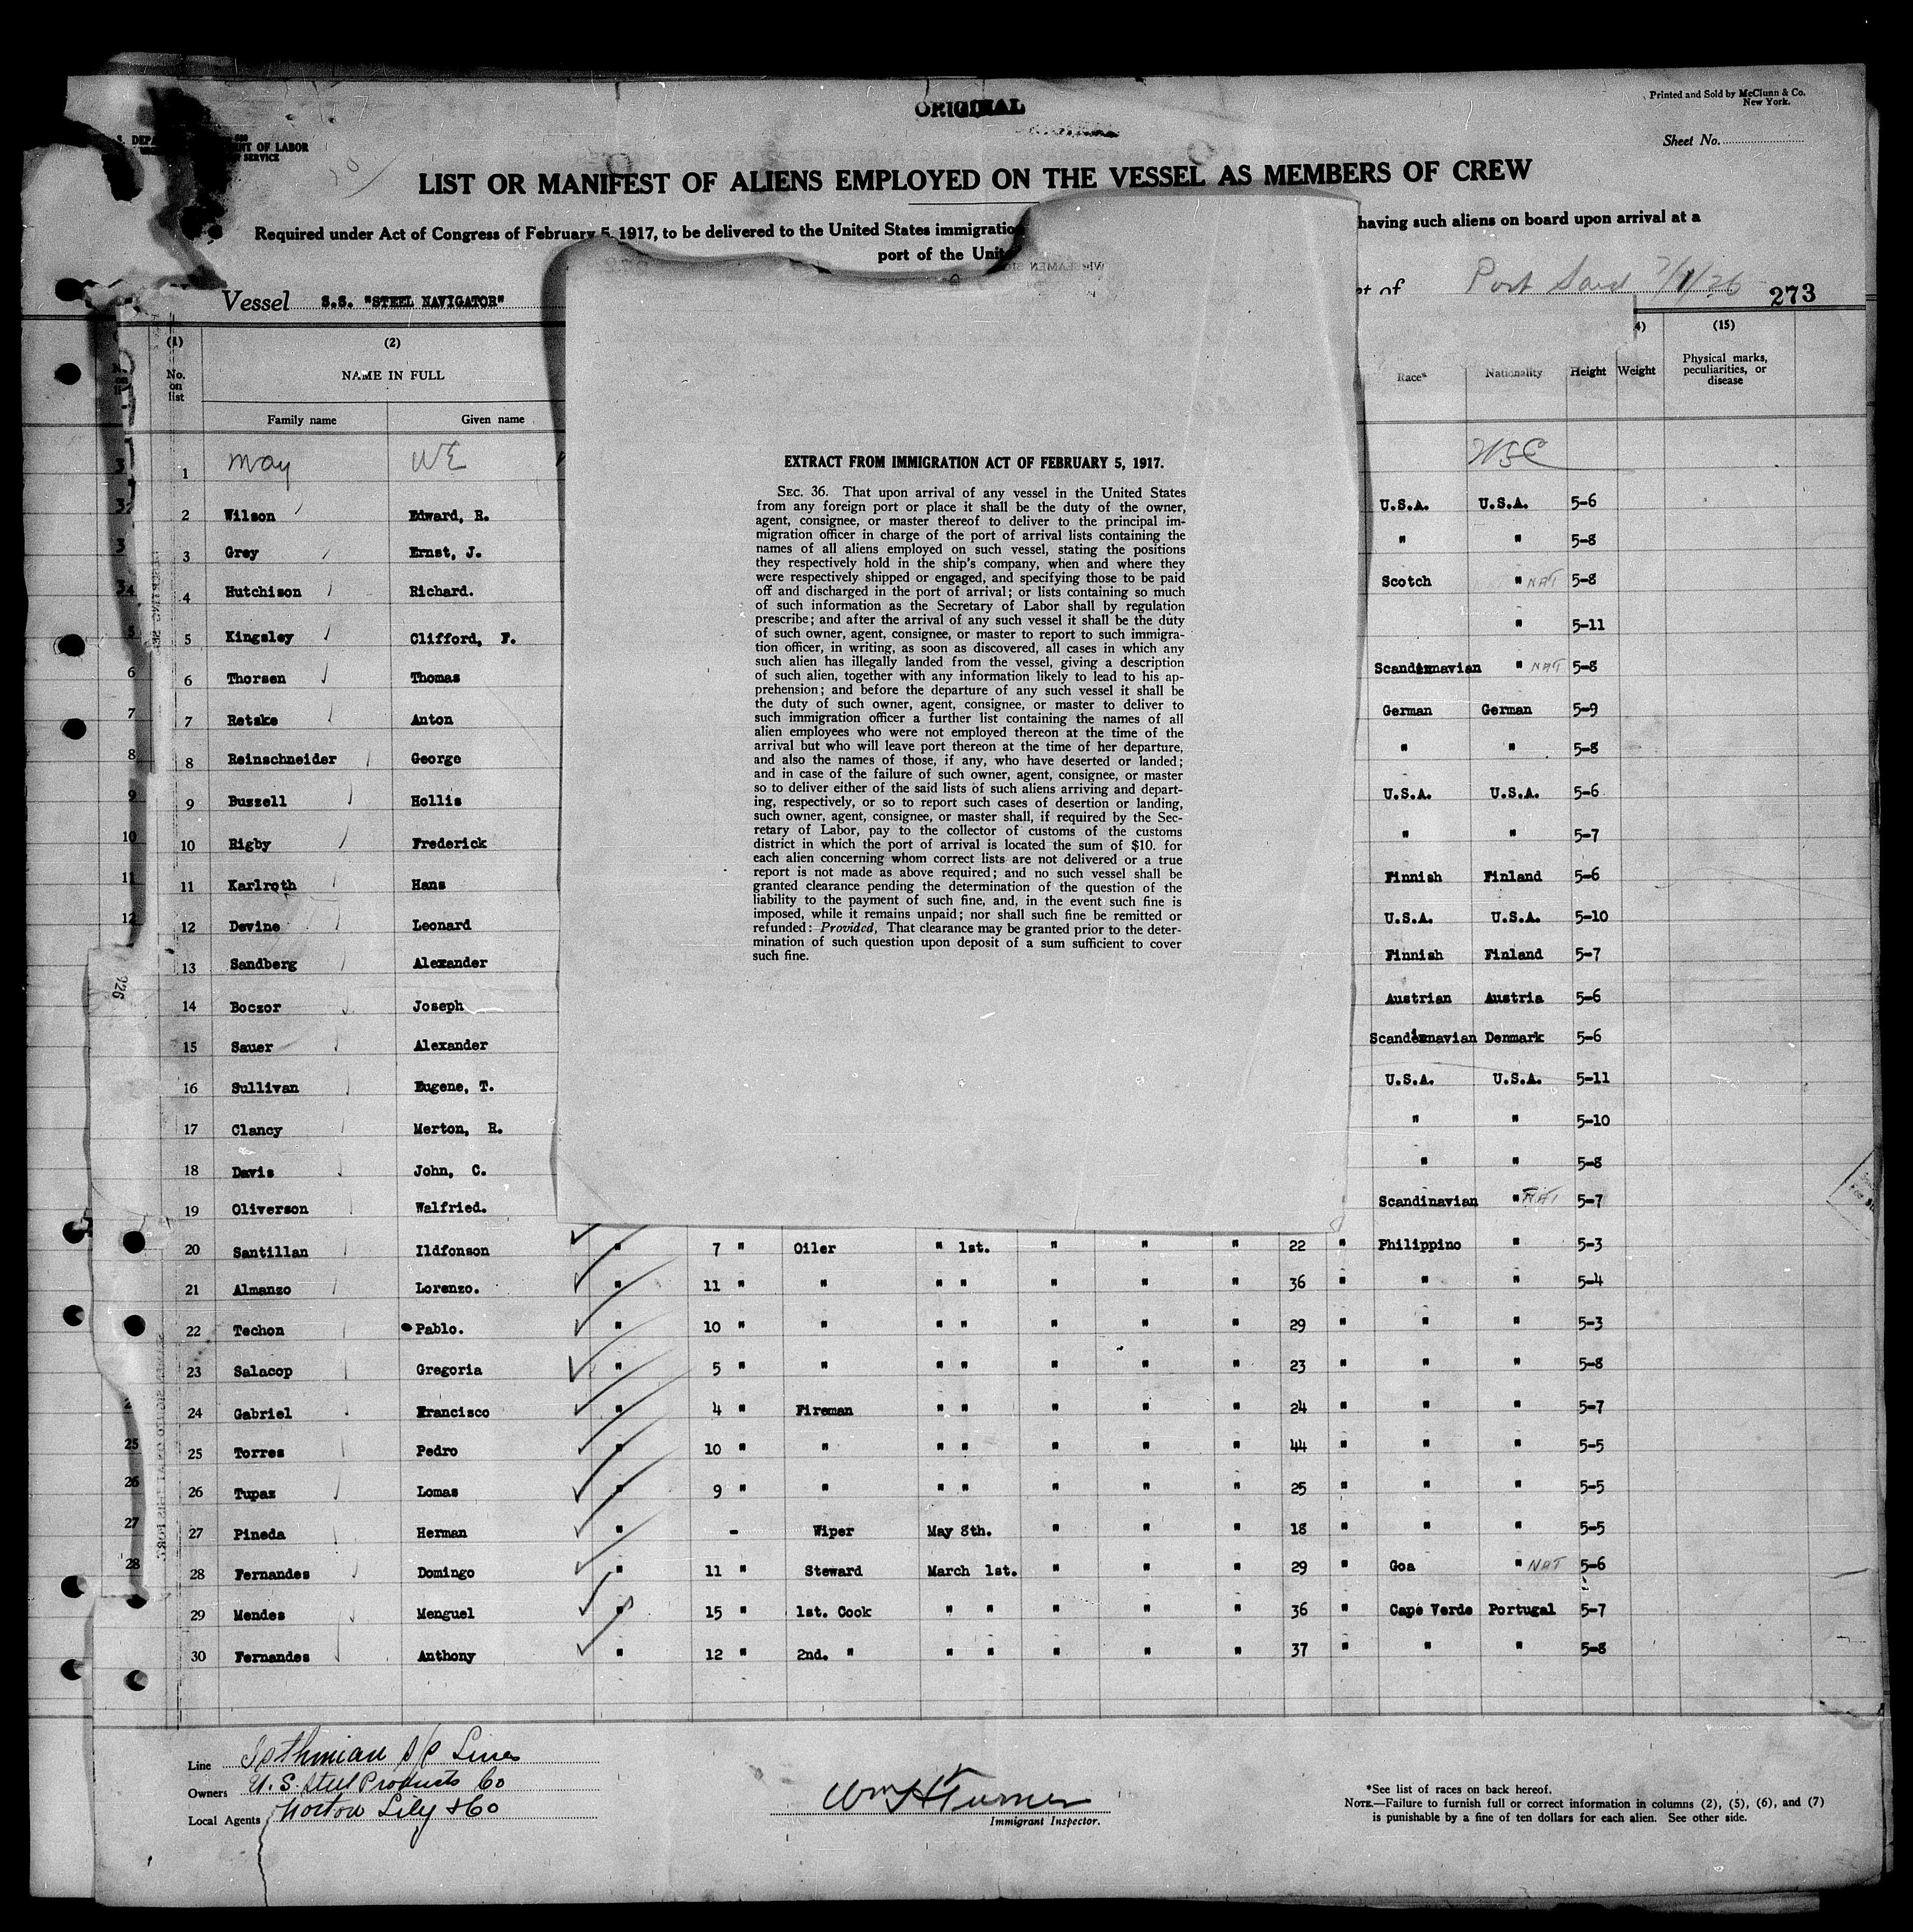 ORIGINAL
Printed and Sold by McClunn & Co.
New York.
Sheet No.
OF LABOR
SERVICE
LIST OR MANIFEST OF ALIENS EMPLOYED ON THE VESSEL AS MEMBERS OF CREW
Required under Act of Congress of February 5, 1917, to be delivered to the United States immigration having such aliens on board upon arrival at a
port of the
Vessel S.S. "STEEL NAVIGATOR" of Port Said 273
(1) (2) (15)
No. on list NAME IN FULL Race* Nationality Height Weight Physical marks, peculiarities, or disease
Family name Given name
1 May WE
2 Wilson Edward, R. U.S.A. U.S.A. 5-6
3 Grey Ernst, J. " " 5-8
4 Hutchison Richard. Scotch " NAT 5-8
5 Kingsley Clifford, F. " 5-11
6 Thorsen Thomas Scandinavian " NAT 5-8
7 Retske Anton German German 5-9
8 Reinschneider George " " 5-8
9 Buzzell Hollis U.S.A. U.S.A. 5-6
10 Rigby Frederick " " 5-7
11 Karlroth Hans Finnish Finland 5-6
12 Devine Leonard U.S.A. U.S.A. 5-10
13 Sandberg Alexander Finnish Finland 5-7
14 Boczor Joseph Austrian Austria 5-6
15 Sauer Alexander Scandinavian Denmark 5-6
16 Sullivan Eugene, T. U.S.A. U.S.A. 5-11
17 Clancy Merton, R. " " 5-10
18 Davis John, C. " " 5-8
19 Oliverson Walfried. Scandinavian " NAT 5-7
20 Santillan Ildfonson " 7 " Oiler " 1st. " " " 22 " Philippino " 5-3
21 Almanzo Lorenzo. " 11 " " " " " " " 36 " " " 5-4
22 Techon Pablo. " 10 " " " " " " " 29 " " " 5-3
23 Salacop Gregoria " 5 " " " " " " " 23 " " " 5-8
24 Gabriel Francisco " 4 " Fireman " " " " " 24 " " " 5-7
25 Torres Pedro " 10 " " " " " " " 44 " " " 5-5
26 Tupaz Lomas " 9 " " " " " " " 25 " " " 5-5
27 Pineda Herman " - Wiper May 8th. " " " 18 " " " 5-5
28 Fernandes Domingo " 11 " Steward March 1st. " " " 29 " Goa " NAT 5-6
29 Mendes Menguel " 15 " 1st. Cook " " " " " 36 " Cape Verde Portugal 5-7
30 Fernandes Anthony " 12 " 2nd. " " " " " " 37 " " " 5-8
EXTRACT FROM IMMIGRATION ACT OF FEBRUARY 5, 1917.
SEC. 36. That upon arrival of any vessel in the United States
from any foreign port or place it shall be the duty of the owner,
agent, consignee, or master thereof to deliver to the principal im-
migration officer in charge of the port of arrival lists containing the
names of all aliens employed on such vessel, stating the positions
they respectively hold in the ship's company, when and where they
were respectively shipped or engaged, and specifying those to be paid
off and discharged in the port of arrival; or lists containing so much
of such information as the Secretary of Labor shall by regulation
prescribe; and after the arrival of any such vessel it shall be the duty
of such owner, agent, consignee, or master to report to such immigra-
tion officer, in writing, as soon as discovered, all cases in which any
such alien has illegally landed from the vessel, giving a description
of such alien, together with any information likely to lead to his ap-
prehension; and before the departure of any such vessel it shall be
the duty of such owner, agent, consignee, or master to deliver to
such immigration officer a further list containing the names of all
alien employees who were not employed thereon at the time of the
arrival but who will leave port thereon at the time of her departure,
and also the names of those, if any, who have deserted or landed;
and in case of the failure of such owner, agent, consignee, or master
so to deliver either of the said lists of such aliens arriving and depart-
ing, respectively, or so to report such cases of desertion or landing,
such owner, agent, consignee, or master shall, if required by the Sec-
retary of Labor, pay to the collector of customs of the customs
district in which the port of arrival is located the sum of $10. for
each alien concerning whom correct lists are not delivered or a true
report is not made as above required; and no such vessel shall be
granted clearance pending the determination of the question of the
liability to the payment of such fine, and, in the event such fine is
imposed, while it remains unpaid; nor shall such fine be remitted or
refunded: Provided, That clearance may be granted prior to the deter-
mination of such question upon deposit of a sum sufficient to cover
such fine.
Line Isthmian S/S Lines
Owners U.S. Steel Products Co
Local Agents Norton Lily & Co
Wm H Turner
Immigrant Inspector.
*See list of races on back hereof.
NOTE.—Failure to furnish full or correct information in columns (2), (5), (6), and (7)
is punishable by a fine of ten dollars for each alien. See other side.